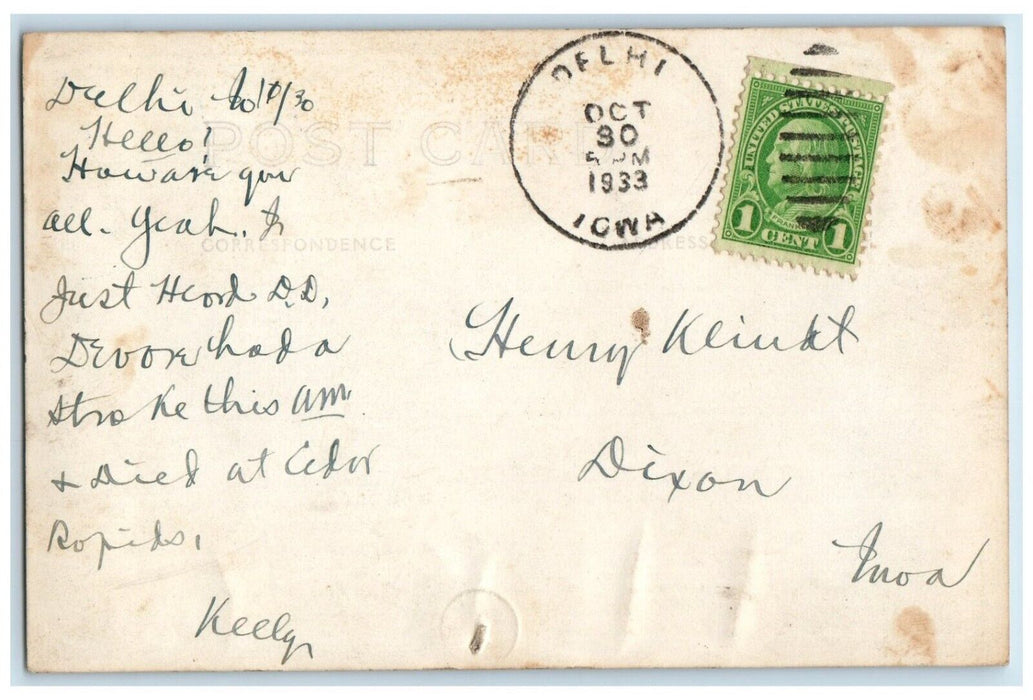 Delhi Ia 10/30
Hello!
How are you
all. Yeah.
Just Heard D.D.
Devore had a
stroke this am
& Died at Cedar
Rapids.
Keely
POST CARD
CORRESPONDENCE
ADDRESS
DELHI
OCT
30
5 PM
1933
IOWA
UNITED STATES POSTAGE
FRANKLIN
1 CENT 1
Henry Klindt
Dixon
Iowa